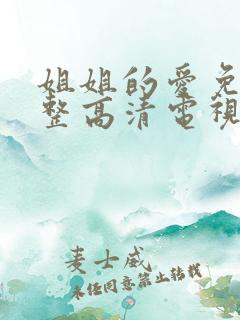 姐姐的愛免
整高清電視
麦士威
未经同意禁止转载